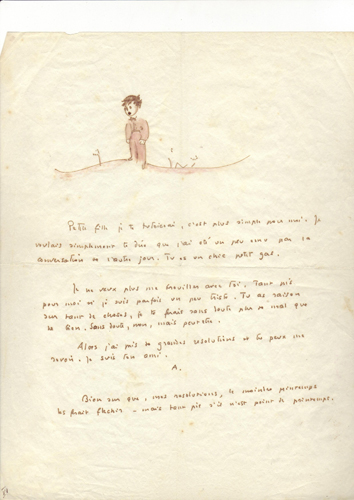 Petite fille je te tutoierai, c'est plus simple pour moi. Je
voulais simplement te dire que j'ai été un peu ému par la
conversation de l'autre jour. Tu es un chic petit gas.
Je ne veux plus me brouiller avec toi. Tant pis
pour moi si je suis parfois un peu triste. Tu as raison
sur tant de choses, je te ferais sans doute plus de mal que
de bien. Sans doute, non, mais peut-être.
Alors j'ai pris de grandes résolutions et tu peux me
revoir. Je suis ton ami.
A.
Bien sûr que, mes résolutions, le moindre printemps
les ferait fléchir - mais tant pis s'il n'est point de printemps.